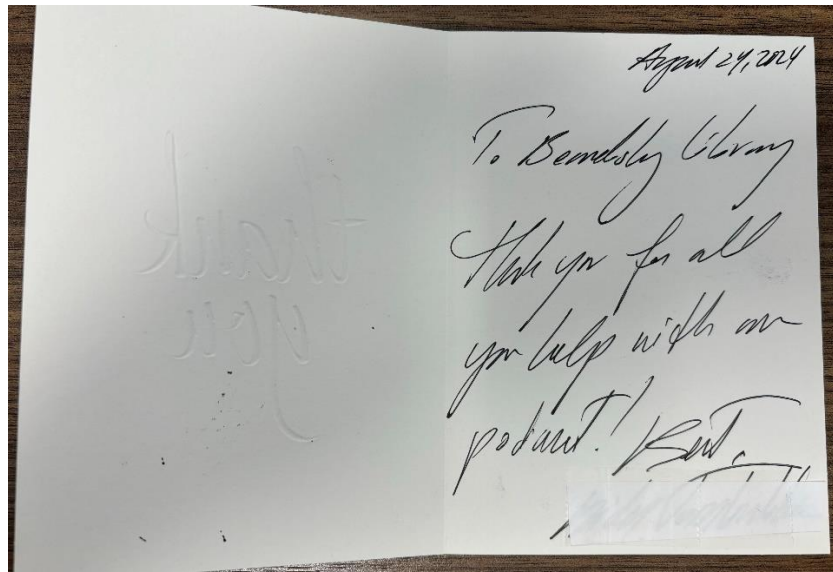 thank
you
April 24, 2024
To Beardsley Library
Thank you for all
your help with our
podcast! Best,